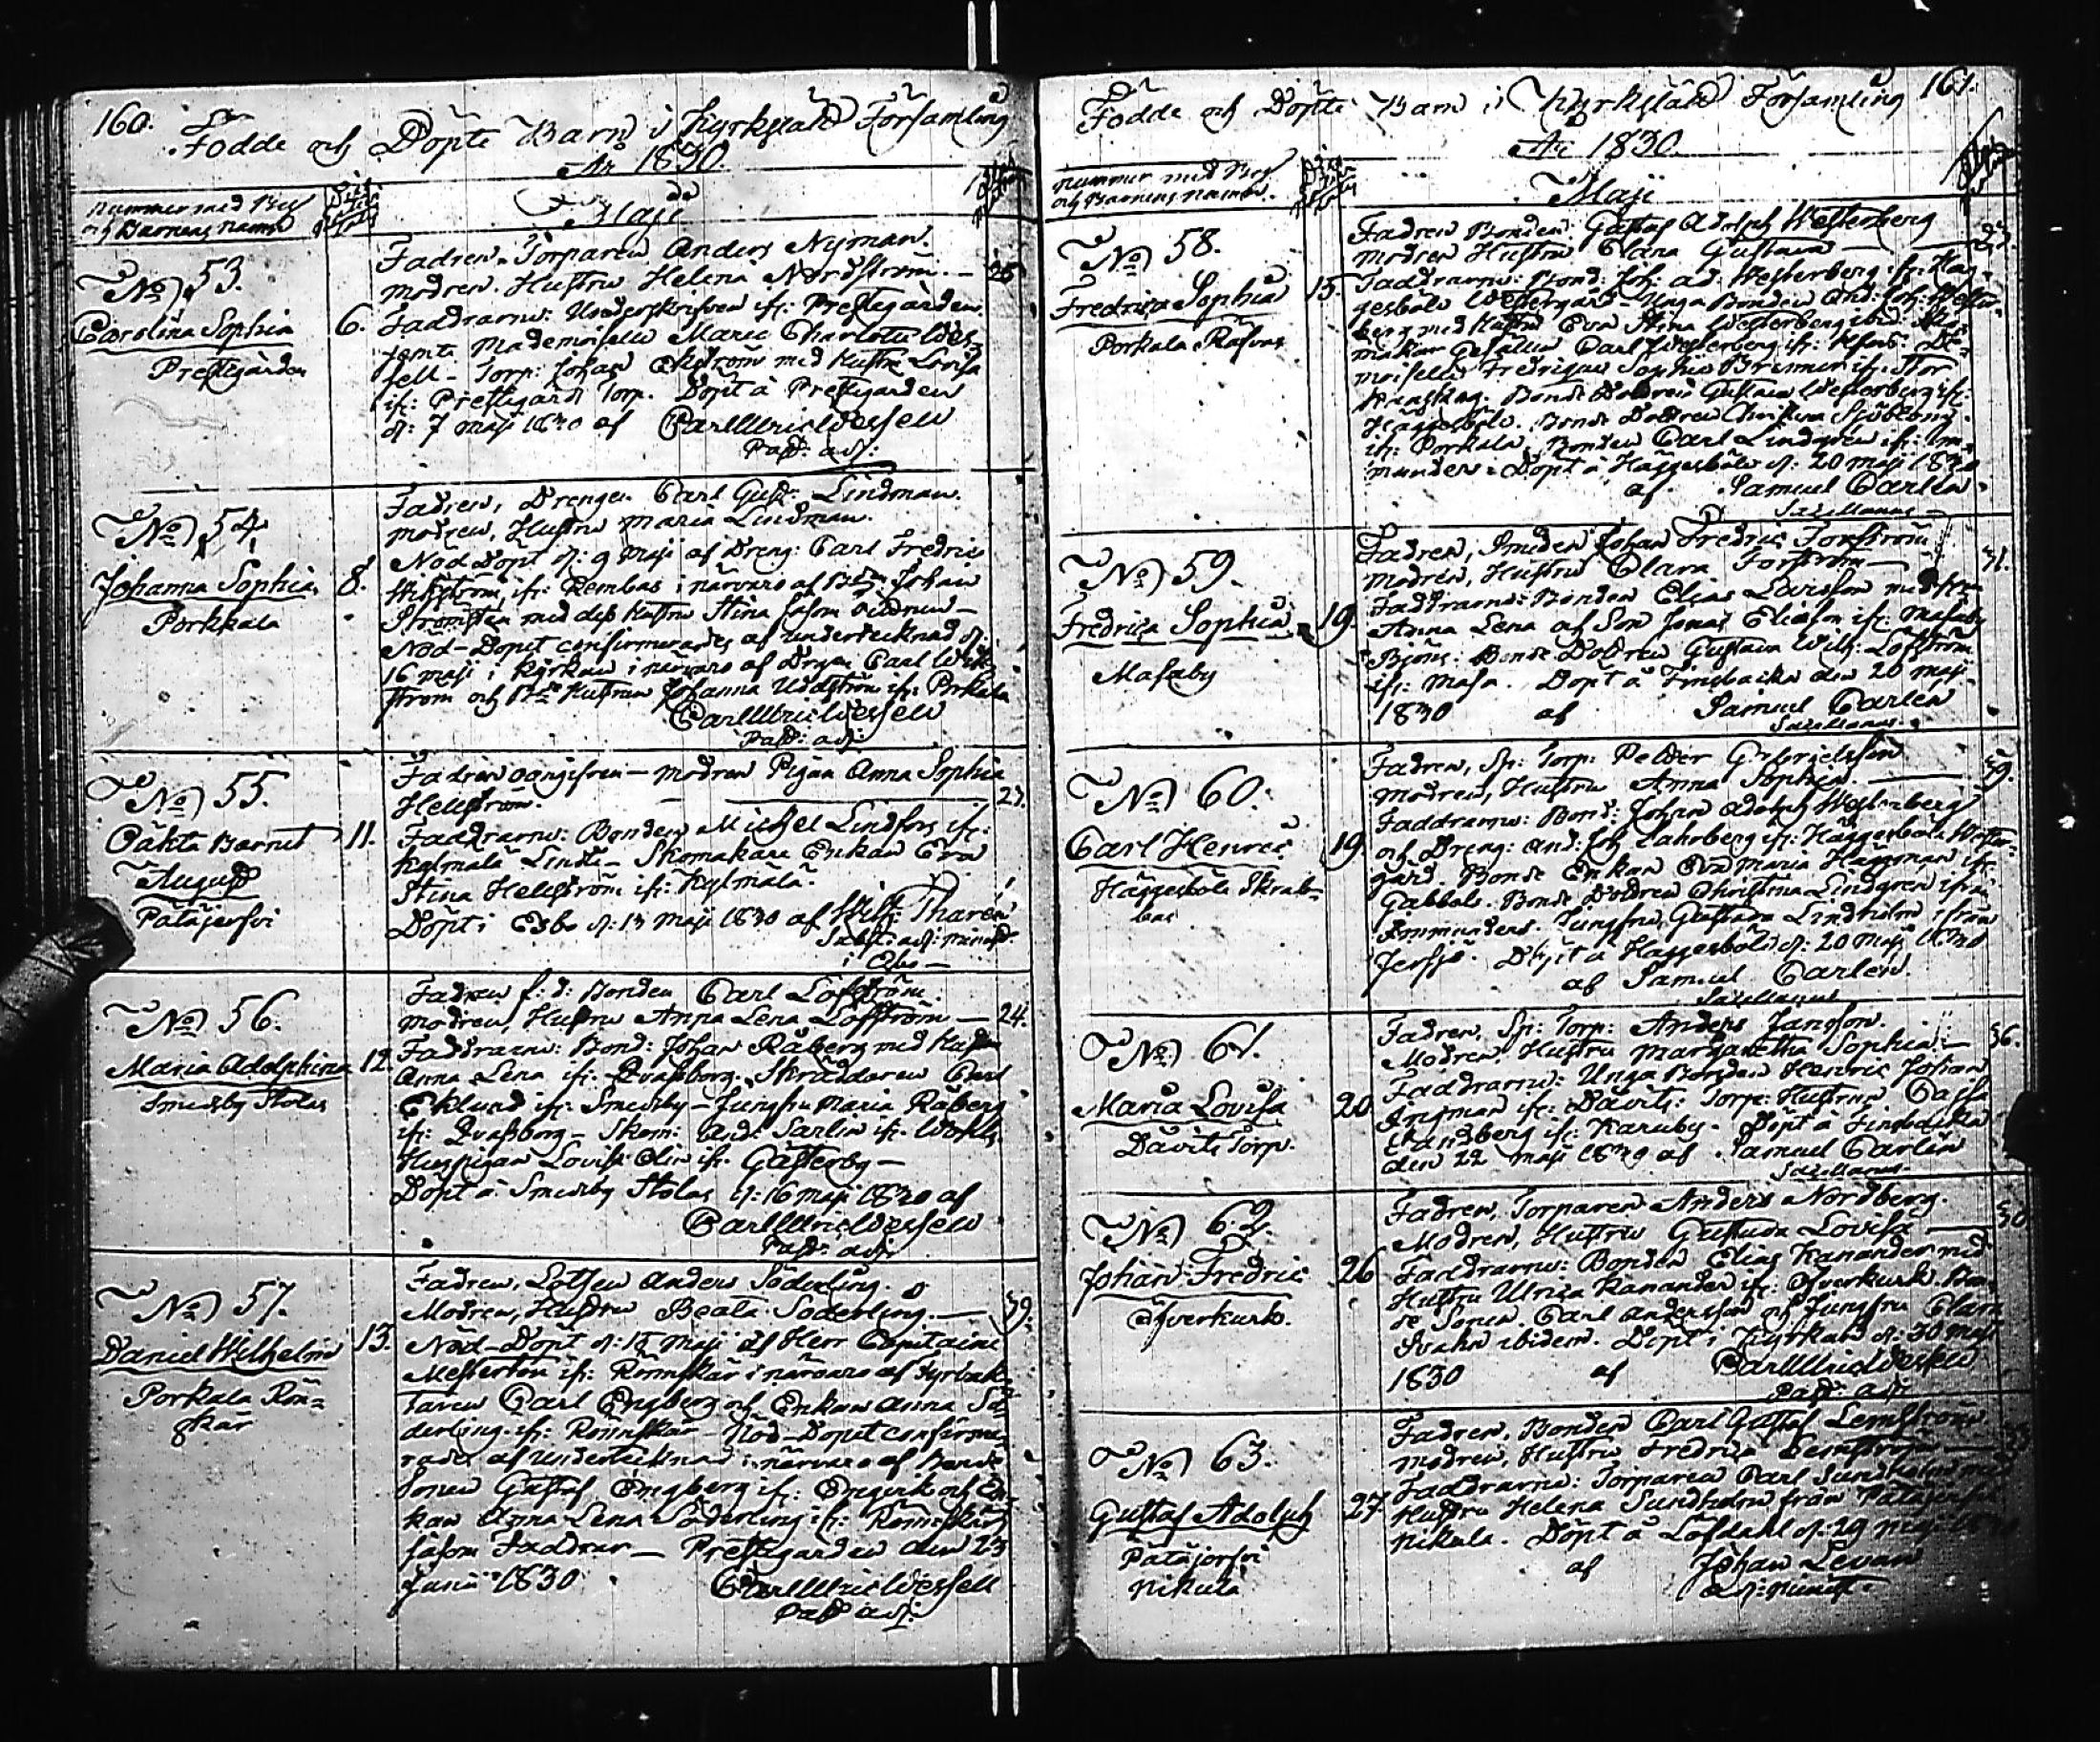 160.
Födde och Döpte Barn i Kyrkslätt Församling
År 1830.
nummer med By
och Barnens namn
Maji
No 53.
Carolina Sophia
Prestgården
6.
Fadren Torparen Anders Nyman.
modren Hustru Helena Nordström. — 25
Faddrarne: Underskrifven ifr: Prestgården
jemte Mademoiselle Marie Charlotte Wes=
sell - Torp: Johan Ekström med Hustru Lovisa
ifr: Prestgårds Torp. Döpt å Prestgården
d: 7 maji 1830 af Carl Ulric Wessell
Past: adj:
No 54.
Johanna Sophia
Porkkala
8.
Fadren, Drengen Carl Gust: Lindman.
modren, Hustru Maria Lindman.
Nöd Döpt d: 9 maji af Dreng: Carl Fredric
Wikström, ifr: Rembas i närvaro af Johan
Strömsten med dess Hustru Stina såsom vittnen —
Nöd-Dopet confirmerades af undertecknad d:
16 maji i Kyrkan i närvaro af Drgen Carl Wik=
ström och Hustrun Johanna Uddström ifr: Porkala
Carl Ulric Wessell
Past: adj:
No 55.
Oäkta Barnet
August
Patajerfvi
11.
Fadren oangifven — modren Pigan Anna Sophia
Hellström. 23.
Faddrarne: Bonden Michel Lindfors ifr:
Kylmälä Linds - Skomakare Enkan Eva
Stina Hellström ifr: Kylmälä.
Döpt i Esbo d: 13 maji 1830 af Wilh: Tharén
Subst: adj: minist:
i Esbo —
No 56.
Maria Adolphina
Smedsby Stolas
12.
Fadren f: d: Bonden Carl Löfström.
modren, Hustru Anna Lena Löfström — 24.
Faddrarne: Bond: Johan Råberg med Hustru
Anna Lena ifr: Skräddaren Carl
Eklund ifr: Smedsby - Jungfru Maria Råberg
ifr: Skom: And: Sarlin ifr:
Huspigan Lovisa Elin ifr: Gästerby —
Döpt å Smedsby Stolas d: 16 maji 1830 af
Carl Ulric Wessell
Past: adj:
No 57.
Daniel Wilhelm
Porkala Rön=
skär
13.
Fadren, Lotsen Anders Söderling.
Modren, Hustru Beata Söderling. — 39.
Nöd-Döpt d: 15 Maji af Herr Capitaine
Mesterton ifr: Rönnskär i närvaro af Fyrvak=
taren Carl Engberg och Enkan Anna Sö=
derling ifr: Rönnskär - Nöd-Dopet confirme=
rades af undertecknad i närvaro af Bonde
Sonen Gustaf Engberg ifr: Engvik och En=
kan Anna Lena Söderling ifr: Rönnskär
såsom Faddrar — Prestgården den 23
Junii 1830 Carl Ulric Wessell
Past: adj:
161.
Födde och Döpte Barn i Kyrkslätt Församling
År 1830.
nummer med By
och Barnens namn.
Maji
No 58.
Fredrica Sophia
Porkala Räfvas
15.
Fadren Bonden Gustaf Adolph Westerberg
modren Hustru Clara Gustava — 23.
Faddrarne: Bond: Joh: Ad: Westerberg ifr: Häg=
gesböle Westergård Unga Bonden And: Joh: Wester=
berg med Hustru Eva Stina Westerberg ibid: Sko=
makar Gesällen Carl Westerberg ifr: Hfors: De=
moiselle Fredrique Sophie Brenner ifr: Stor
Bonde Dottren Gustava Westerberg ifr:
Häggesböle. Bonde Dottren Christina Sjöblom
ifr: Porkala, Bonden Carl Lindgren ifr: Im=
munders - Döpt å Häggesböle d: 20 maji 1830
af Samuel Carlén
Sacellanus
No 59.
Fredrica Sophia
Masaby
19.
Fadren, Smeden Johan Fredric Forsström
modren, Hustru Clara Forsström — 31.
Faddrarne: Bonden Elias Larsson med
Anna Lena och Son Jonas Eliasson ifr: Masaby
Björs: Bonde Dottren Gustava Wilh: Löfström
ifr: Masa. Döpt å Finsbacka den 20 maji
1830 af Samuel Carlén
Sacellanus
No 60.
Carl Henric
Häggesböle Skrab=
bas
19.
Fadren, Sp: Torp: Petter Gabrielsson
modren, Hustru Anna Sophia. — 39.
Faddrarne: Bond: Johan Adolph Westerberg
och Dreng: And: Joh: ifr: Häggesböle Wester=
gård. Bonde Enkan Eva Maria Häggman ifr:
Gabbels. Bonde Dottren Christina Lindgren ifrån
Immunders. Jungfru Gustava Lindholm ifrån
Jerfsjö. Döpt å Häggesböle d: 20 maji 1830
af Samuel Carlén.
Sacellanus
No 61.
Maria Lovisa
Davits Torp.
20
Fadren, Sp: Torp: Anders Jansson.
Modren Hustru Margaretha Sophia — 36.
Faddrarne: Unga Bonden Henric Johan
Ingman ifr: Davits: Torp: Hustrun Cajsa
Sandberg ifr: Karuby. Döpt å Finsbacka
den 22 maji 1830 af Samuel Carlén
Sacellanus
No 62.
Johan Fredric
Öfverkurk.
26
Fadren, Torparen Anders Nordberg.
Modren, Hustru Gustava Lovisa — 30
Faddrarne: Bonden Elias Kanander med
Hustru Ulrica Kanander ifr: Öfverkurk. Bon=
de Sonen Carl Andersson och Jungfru Clara
ibidem. Döpt i Kyrkan d: 30 maji
1830 af Carl Ulric Wessell
Past: adj:
No 63.
Gustaf Adolph
Patajerfvi
Nikula
27
Fadren, Bonden Carl Gustaf Lemström
modren, Hustru Fredrica Lemström —
Faddrarne: Torparen Carl Sundholm med
Hustru Helena Sundholm från Patajerfvi
Nikula. Döpt å Löfdahl d: 29 Maji 1830
af Johan Levan
adj: minist: